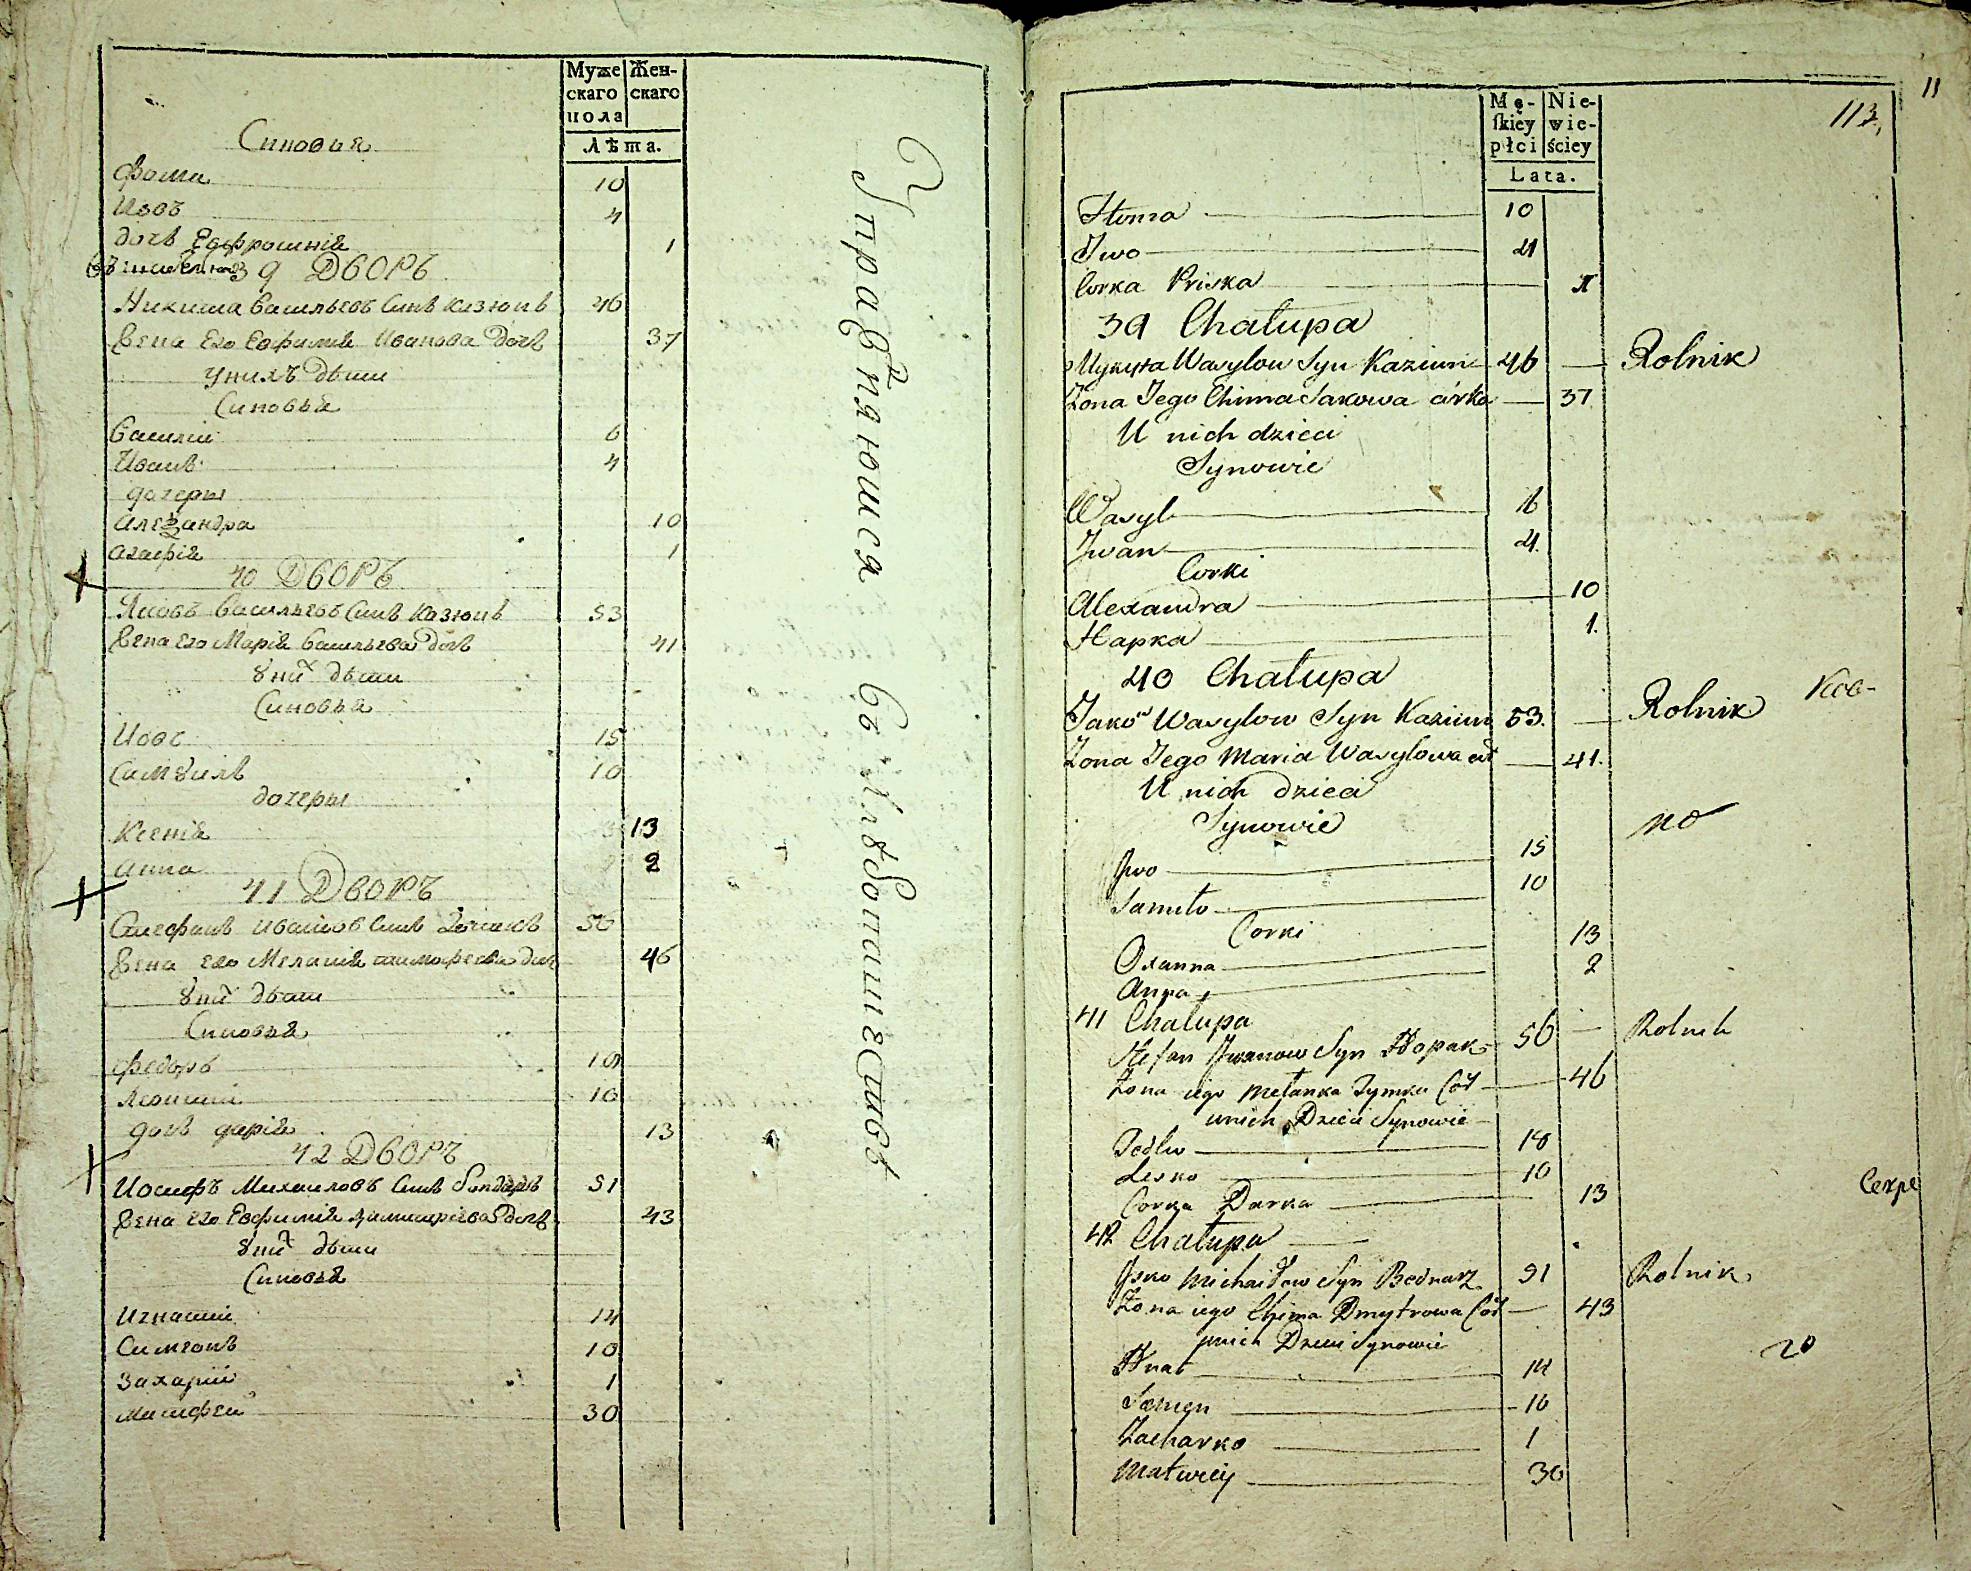 Муже
скаго
пола
Жен-
скаго
Лѣта.
Синовья
Фома 10
Иовъ 4
дочь Евфросинія 1
39 Дворъ
Никита Васильевъ Синъ Казюнъ 46
Жена Его Евфимія Иванова Дочь 37
У нихъ дѣти
Синовья
Василій 6
Иванъ 4
дочеры
Алеѯандра 10
Агафія 1
40 Дворъ
Яковъ Васильевъ Синъ Казюнъ 53
Жена Его Марія Васильева Дочь 41
Ꙋ них дѣти
Синовья
Иовъ 15
Самꙋилъ 10
дочеры
Ксенія 13
Анна 2
41 Дворъ
Стефанъ Ивановъ Синъ 56
Жена его Меланія Тимофеева доч 46
Ꙋ них дѣти
Синовья
Федоръ 18
Леонтій 10
дочь Дарія 13
42 Дворъ
Иосифъ Михаиловъ Синъ Бондаръ 51
Жена Его Евфимія Димитріева Дочь 43
Ꙋ них дѣти
Синовья
Игнатій 14
Симеонъ 10
Захарій 1
Матфей 30
Упражняются въ Хлѣбопашествѣ
11
113.
Mę-
skiey
płci
Nie-
wie-
ściey
Lata.
Homa 10
Iwo 4
Corka Priska 1
39 Chałupa
Mykyta Wasylow Syn Kaziun 46 — Rolnik
Zona Jego Chima Jakowa córka — 37
U nich dzieci
Synowie
Wasyl 6
Iwan 4.
Corki
Alexandra 10
Hapka 1.
40 Chałupa
Jakow Wasylow Syn Kaziun 53. — Rolnik
Ков-
Zona Jego Maria Wasylowa cór — 41.
U nich dzieci
Synowie
но
Iwo 15
Samuło 10
Corki
Oxanna 13
Anna 2
41 Chałupa
Stefan Iwanow Syn 56 — Rolnik
Zona iego Mełanka Tymka Cór — 46
unich Dzieci Synowie
Fedko 18
Lesko 10
Corka Darka 13
Секре
42 Chałupa
Josko Michaiłow Syn Bednarz 51 Rolnik
Zona iego Chima Dmytrowa Cór — 43
unich Dzieci Synowie
го
Hnat 14
Semen 10
Zacharko 1
Matwiey 30